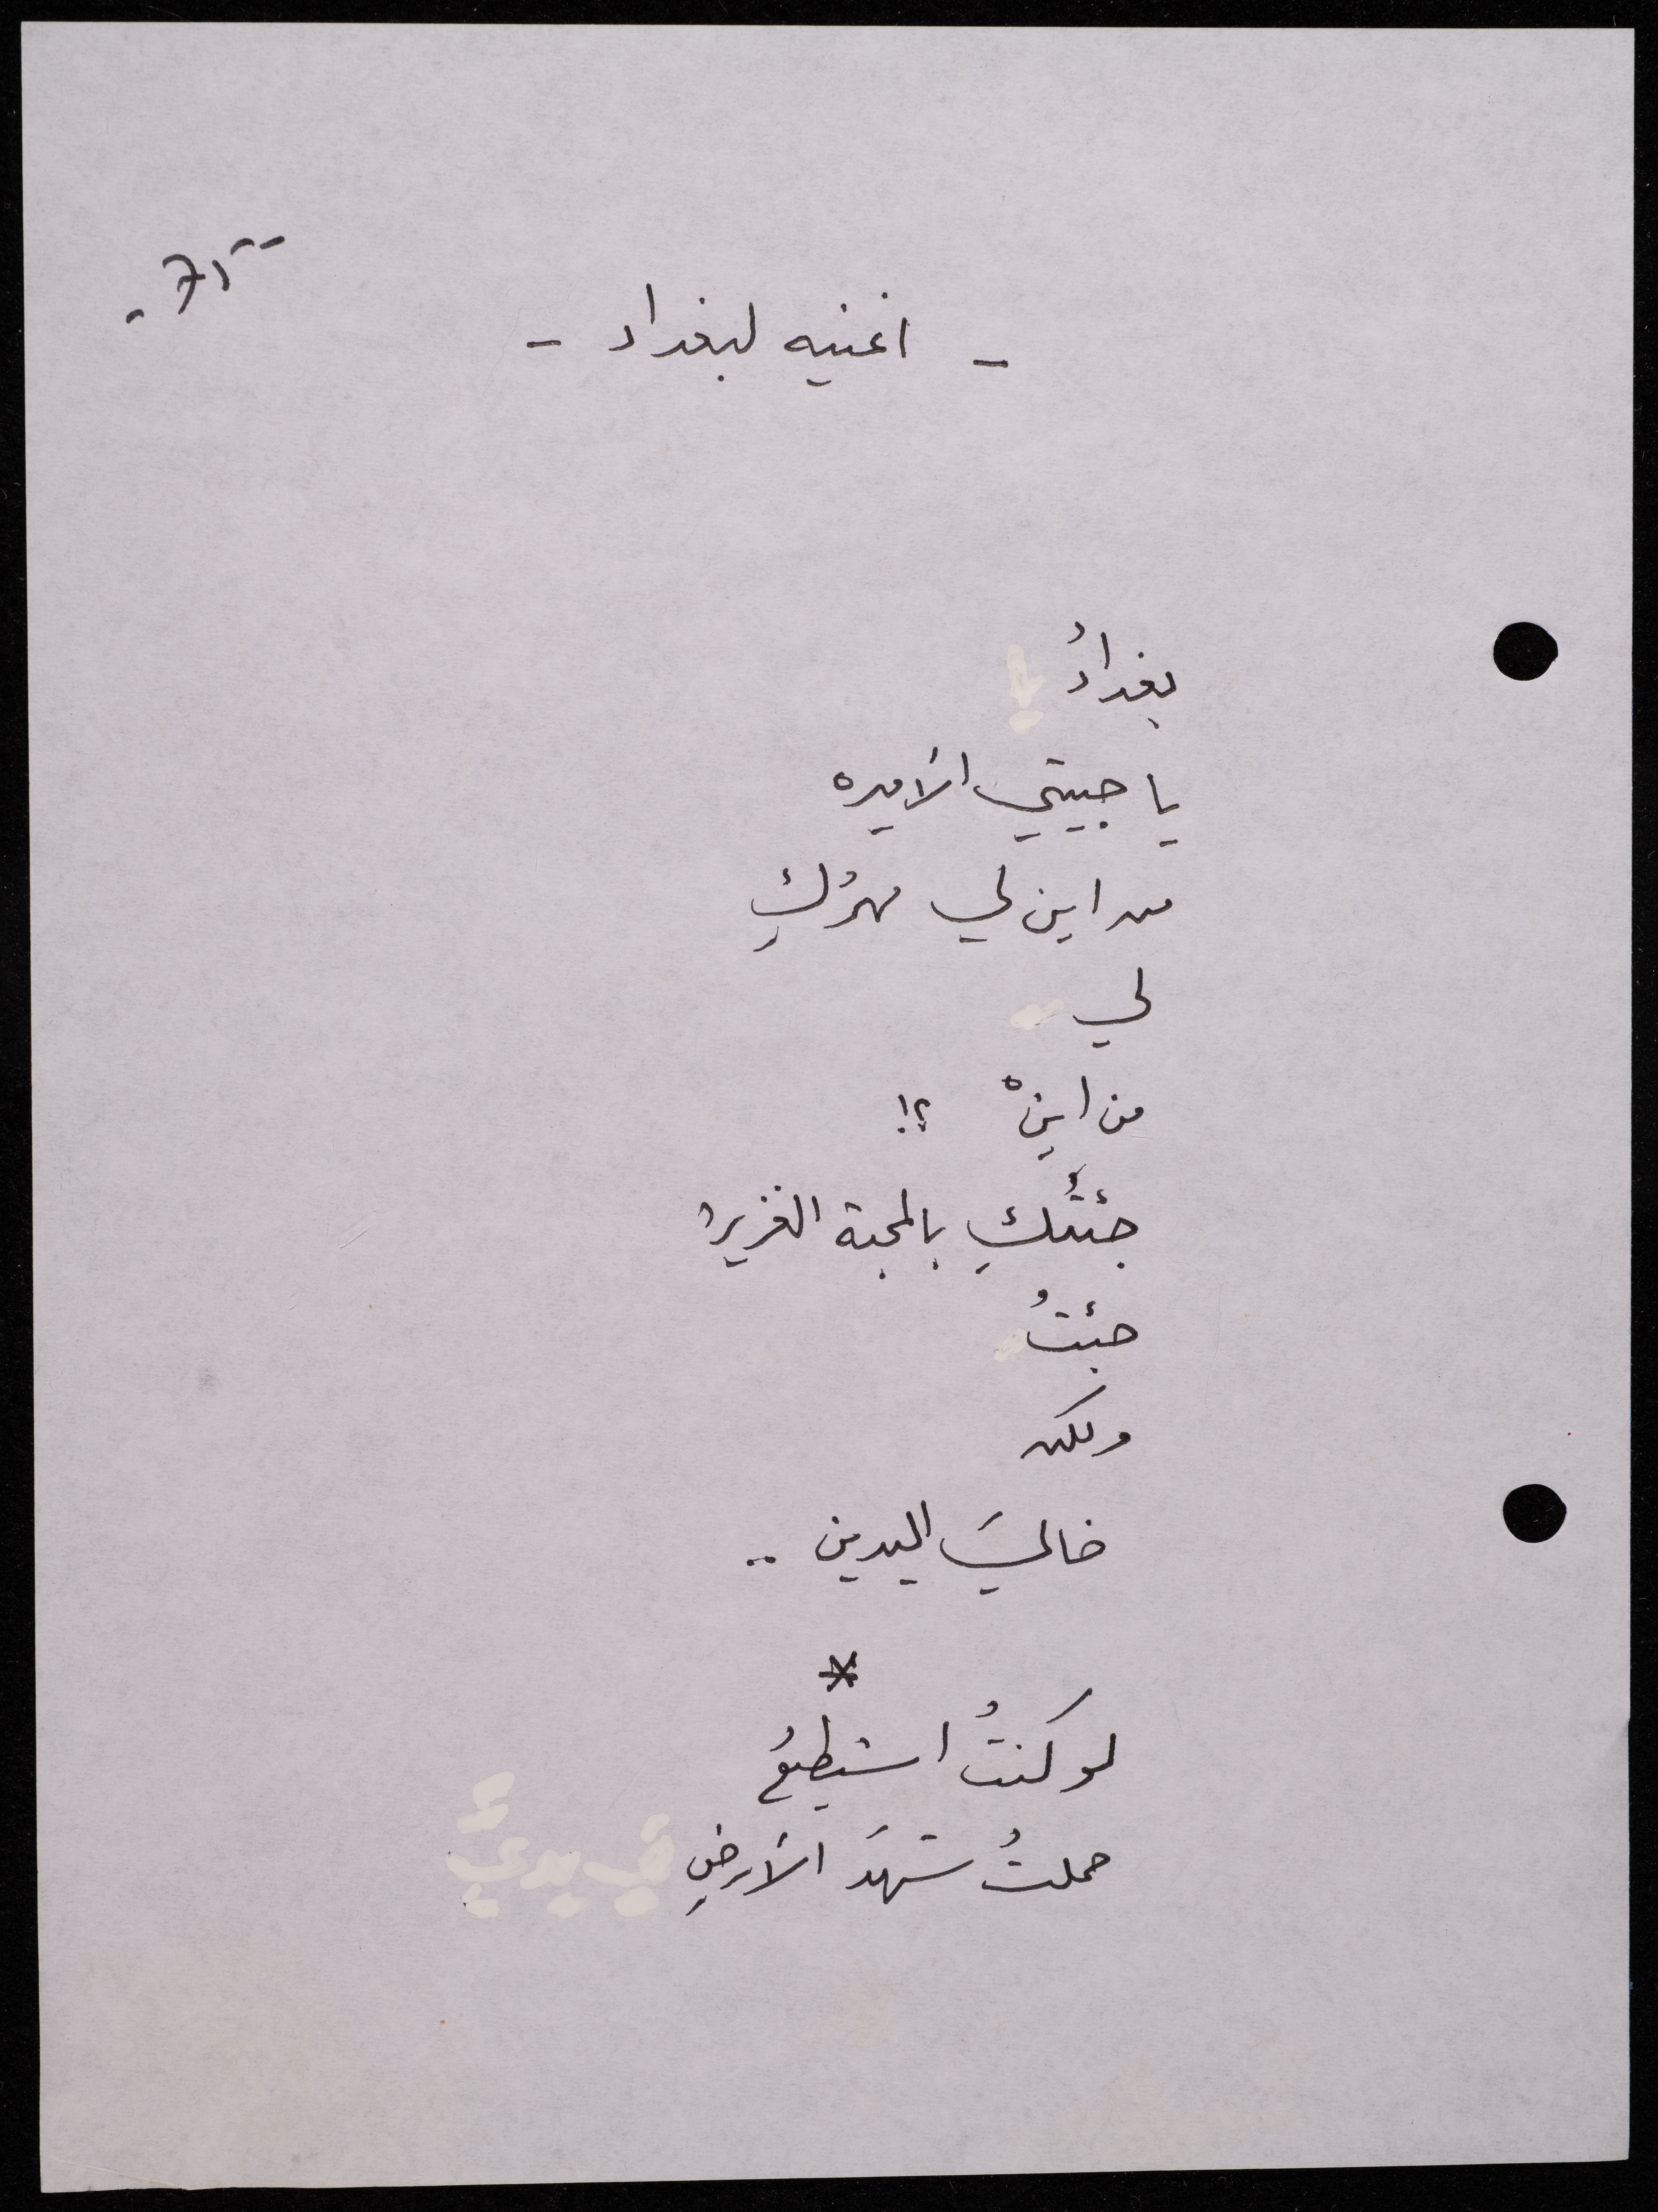 - اغنيه لبغداد -
بغدادُ
يا حبيبتي الأميره
من اين لي مهرُكِ
لي
من اينْ ؟!
جئتُكِ بالمحبة الغزيره
جئتُ
ولكن
خاليَ اليدين ..
*
لو كنتُ استطيعُ
حملتُ شهدَ الأرضِ